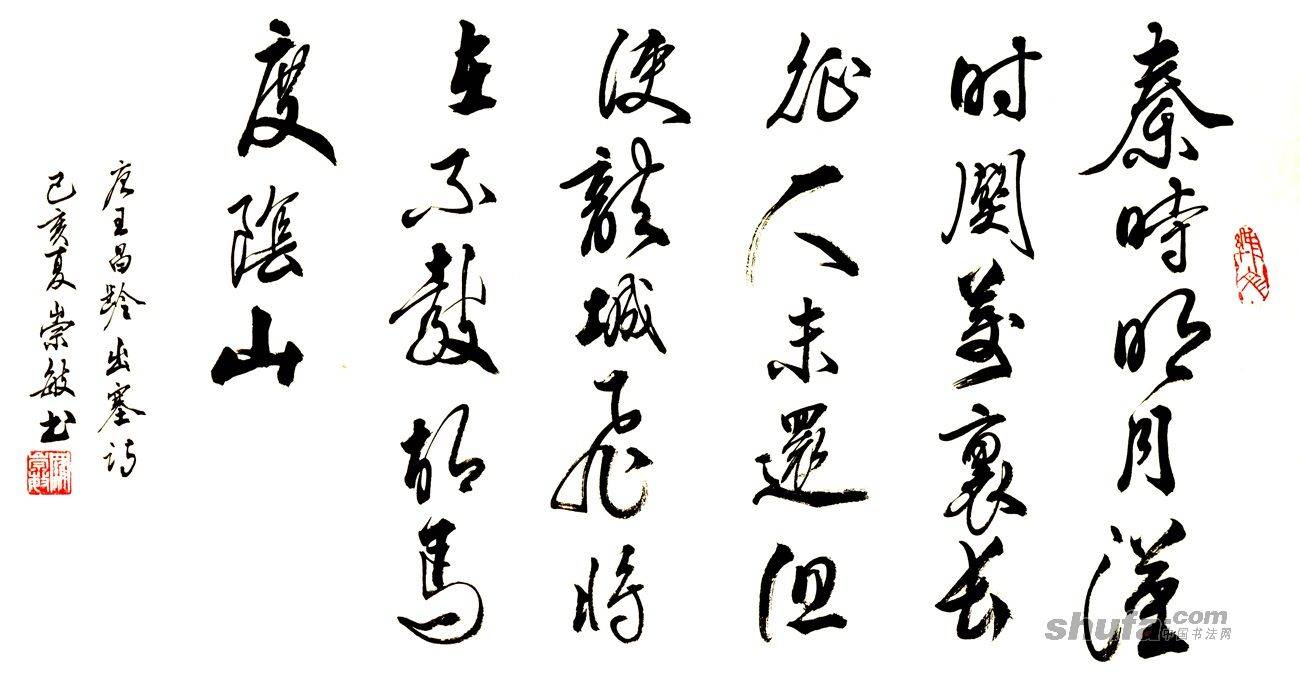 秦時明月漢
时関萬裏长
征人未還但
使龍城飛將
在不教胡馬
度陰山
唐王昌齡出塞诗
己亥夏崇敏书
shufa.com
中国书法网